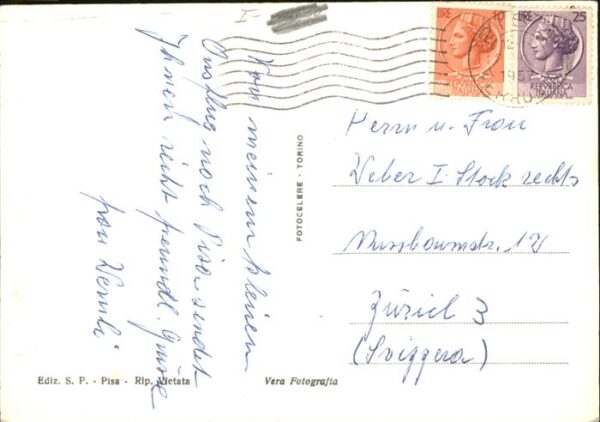 I-
Von meinem kleinen
Ausflug nach Pisa sendet
Ihnen recht freundl. Grüsse
Frau Wernli
FOTOCELERE - TORINO
LIRE 10
LIRE 25
REPVBBLICA
ITALIANA
REPVBBLICA
ITALIANA
195
FERROV
Herrn u. Frau
Weber I. Stock rechts
Nussbaumstr. 12
Zürich 3
(Svizzera)
Ediz. S. P. - Pisa - Rip. Vietata
Vera Fotografia